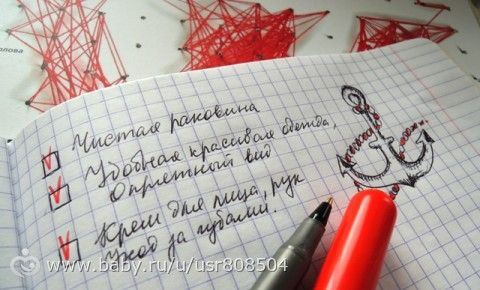 олова
Чистая раковина
Удобная красивая одежда,
Опрятный вид
Крем для лица, рук
Уход за губами.
www.baby.ru/u/usr808504